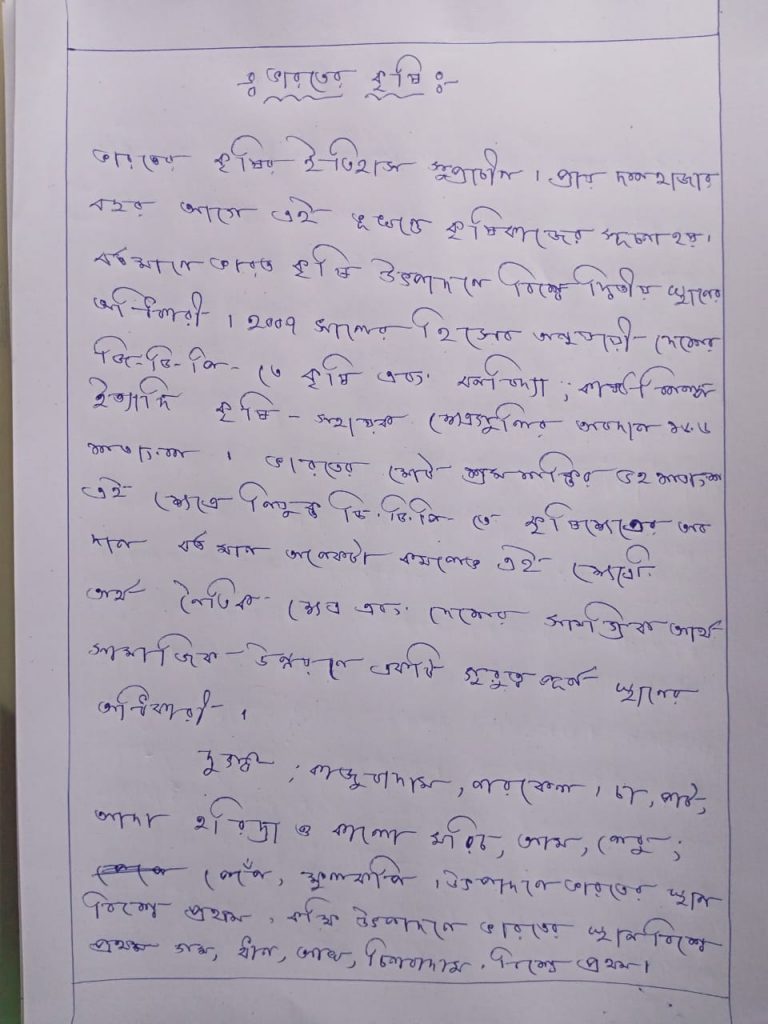 ভারতের কৃষি
ভারতের কৃষির ইতিহাস সুপ্রাচীন । প্রায় দশহাজার
বছর আগে এই ভূখণ্ডে কৃষিকাজের সূচনা হয়।
বর্তমানে ভারত কৃষি উৎপাদনে বিশ্বে দ্বিতীয় স্থানের
অধিকারী । ২০০৭ সালের হিসেব অনুযায়ী দেশের
জি-ডি-পি- তে কৃষি এবং বনবিদ্যা ; কাষ্ঠশিল্প
ইত্যাদি কৃষি - সহায়ক ক্ষেত্রগুলির অবদান ১৬.৬
শতাংশ । ভারতের মোট শ্রমশক্তির ৫২ শতাংশ
এই ক্ষেত্রে নিযুক্ত জি.ডি.পি- তে কৃষিক্ষেত্রের অব
দান বর্তমান অনেকটা কমলেও এই ক্ষেত্রটি
অর্থ নৈতিক ক্ষেত্র এবং দেশের সামগ্রিক আর্থ
সামাজিক - উন্নয়নে একটি গুরুত্বপূর্ন স্থানের
অধিকারী - ।
দুগ্ধ ; কাজুবাদাম , নারকেল । চা , পাট ,
আদা হরিদ্রা ও কালো মরিচ , আম , লেবু ;
পেঁপে , ফুলকপি । উৎপাদনে ভারতের স্থান
বিশ্বে প্রথম । কফি উৎপাদনে ভারতের স্থান বিশ্বে
প্রথম গম , ধান , আখ , চিনাবাদাম . বিশ্বে প্রথম।